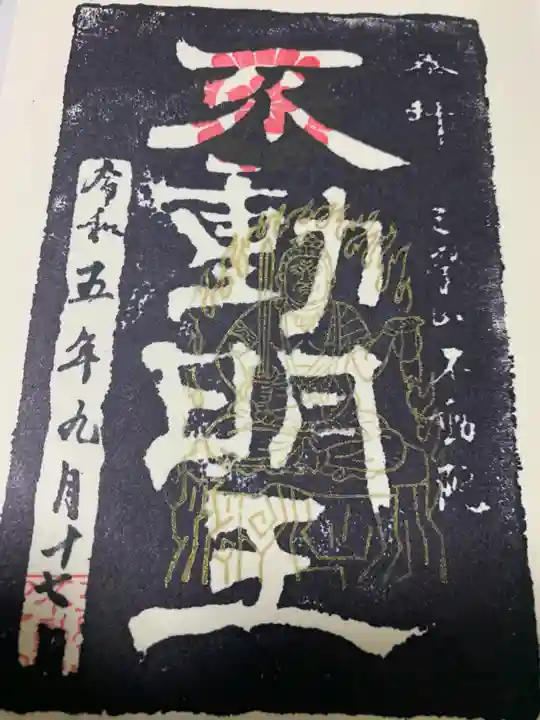 奉拝
三宝山不動院
不動明王
令和五年九月十七